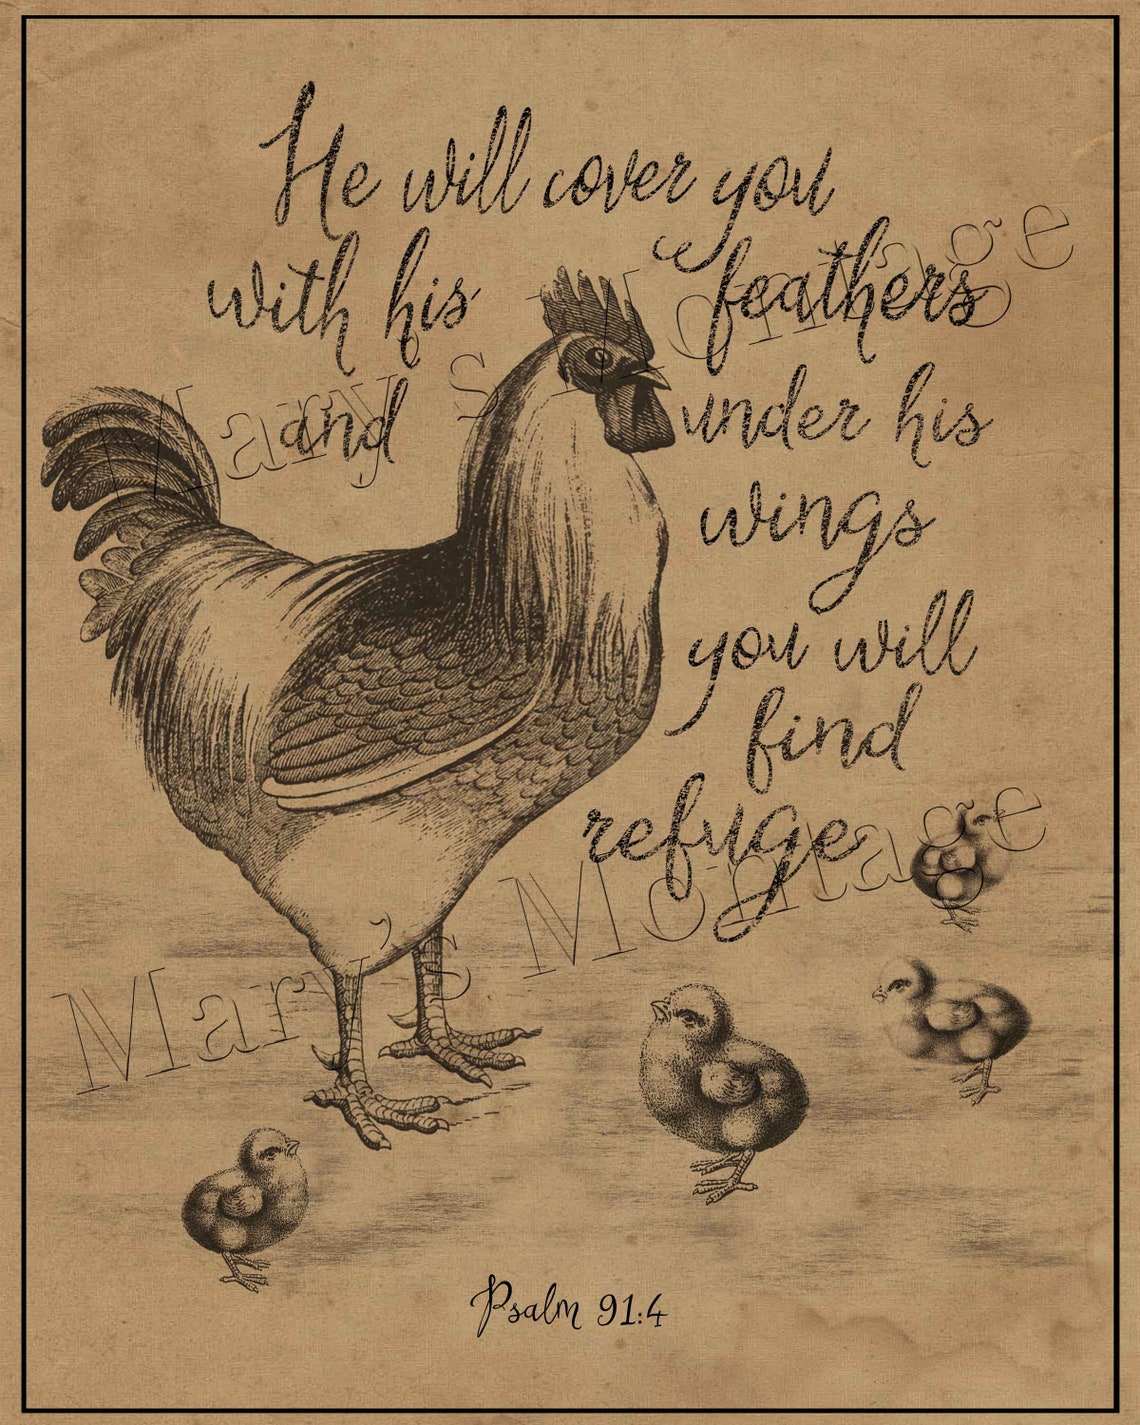 He will cover you
with his feathers
and under his
wings
you will
find
refuge
Psalm 91:4
Mary's Montage
Mary's Montage